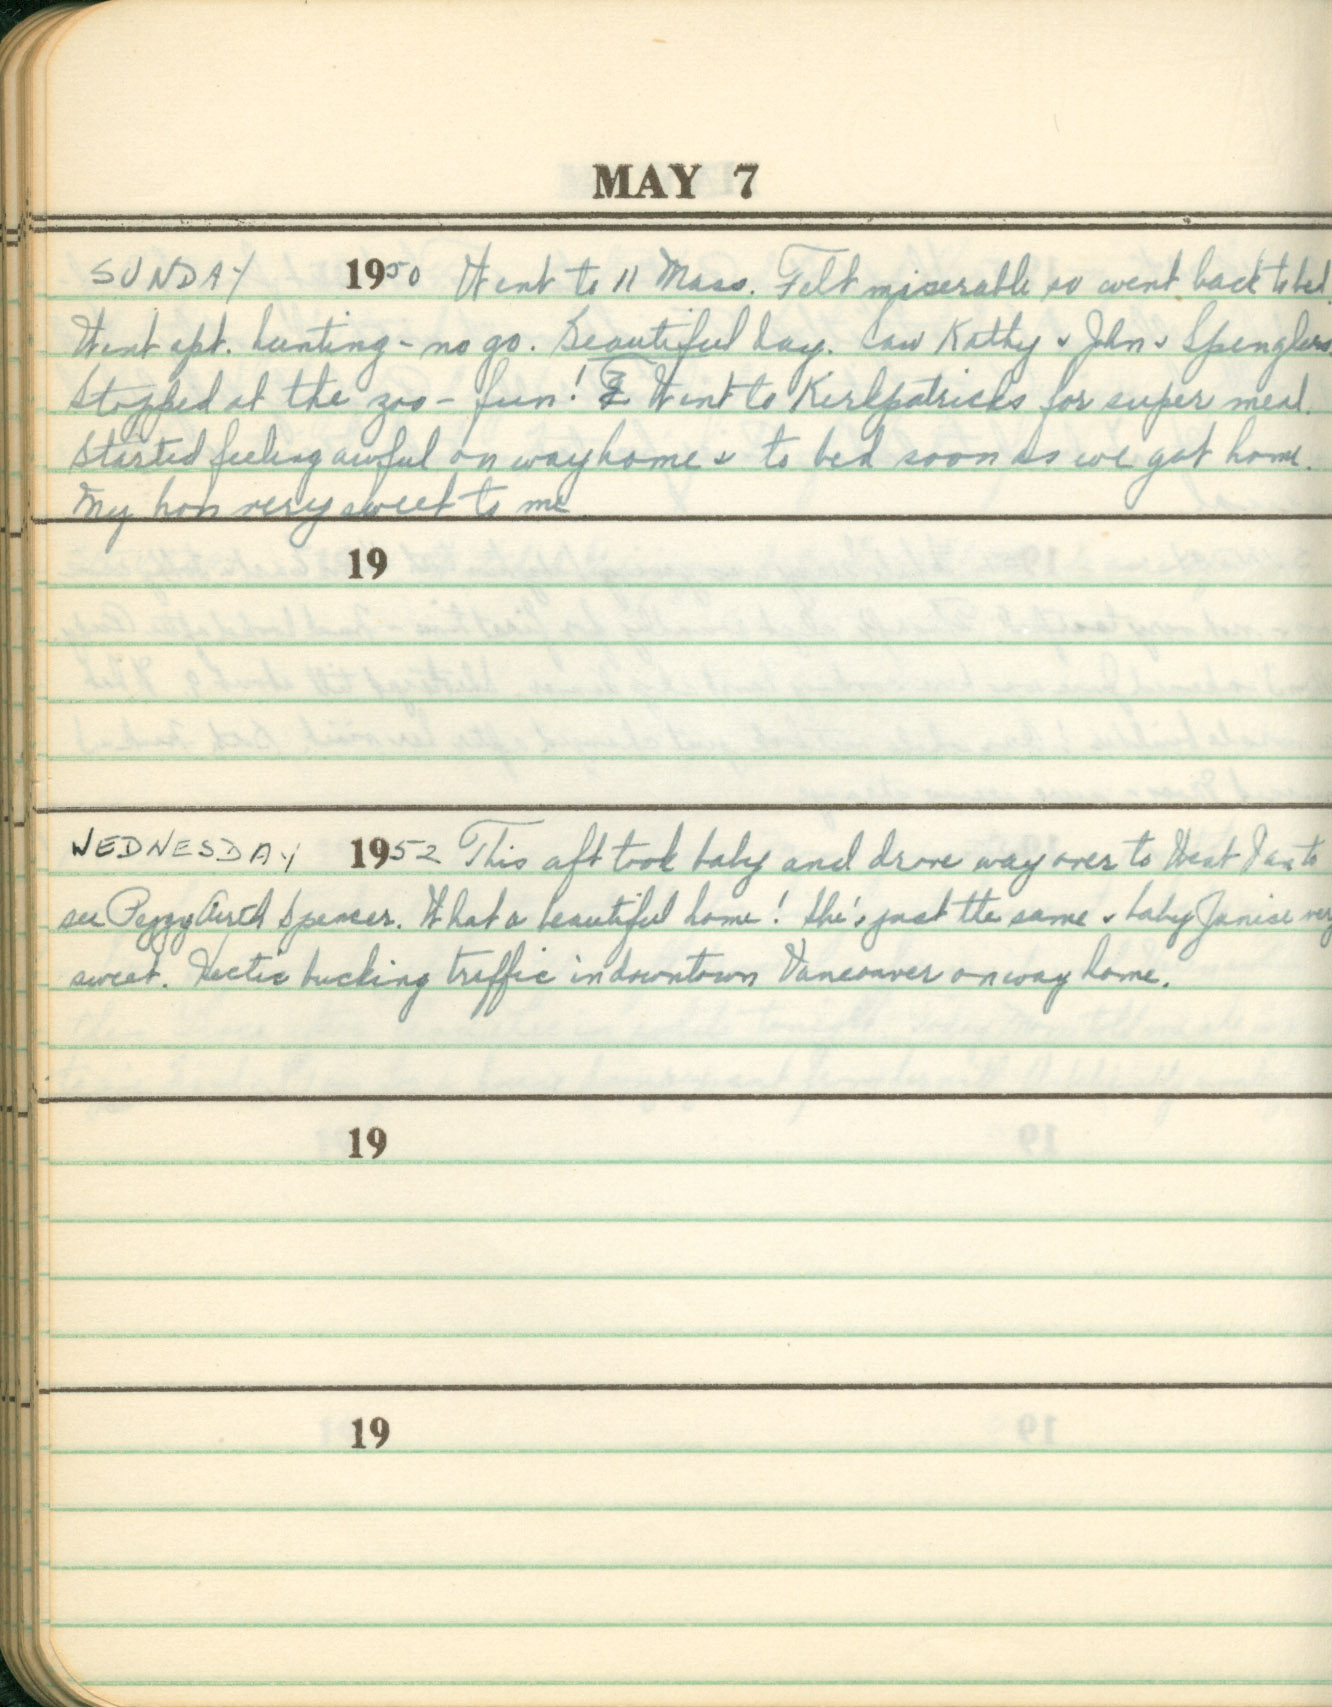 MAY 7
SUNDAY 1950 Went to 11 Mass. Felt miserable so went back to bed.
Went apt. hunting - no go. Beautiful day. Saw Kathy & John & Spenglers
Stopped at the zoo - fun! Went to Kirkpatricks for super meal.
Started feeling awful on way home & to bed soon as we got home.
My hon very sweet to me
19
WEDNESDAY 1952 This aft took baby and drove way over to West Van to
see Peggy Spencer. What a beautiful home! She's just the same & baby Janice very
sweet. Hectic bucking traffic in downtown Vancouver on way home.
19
19